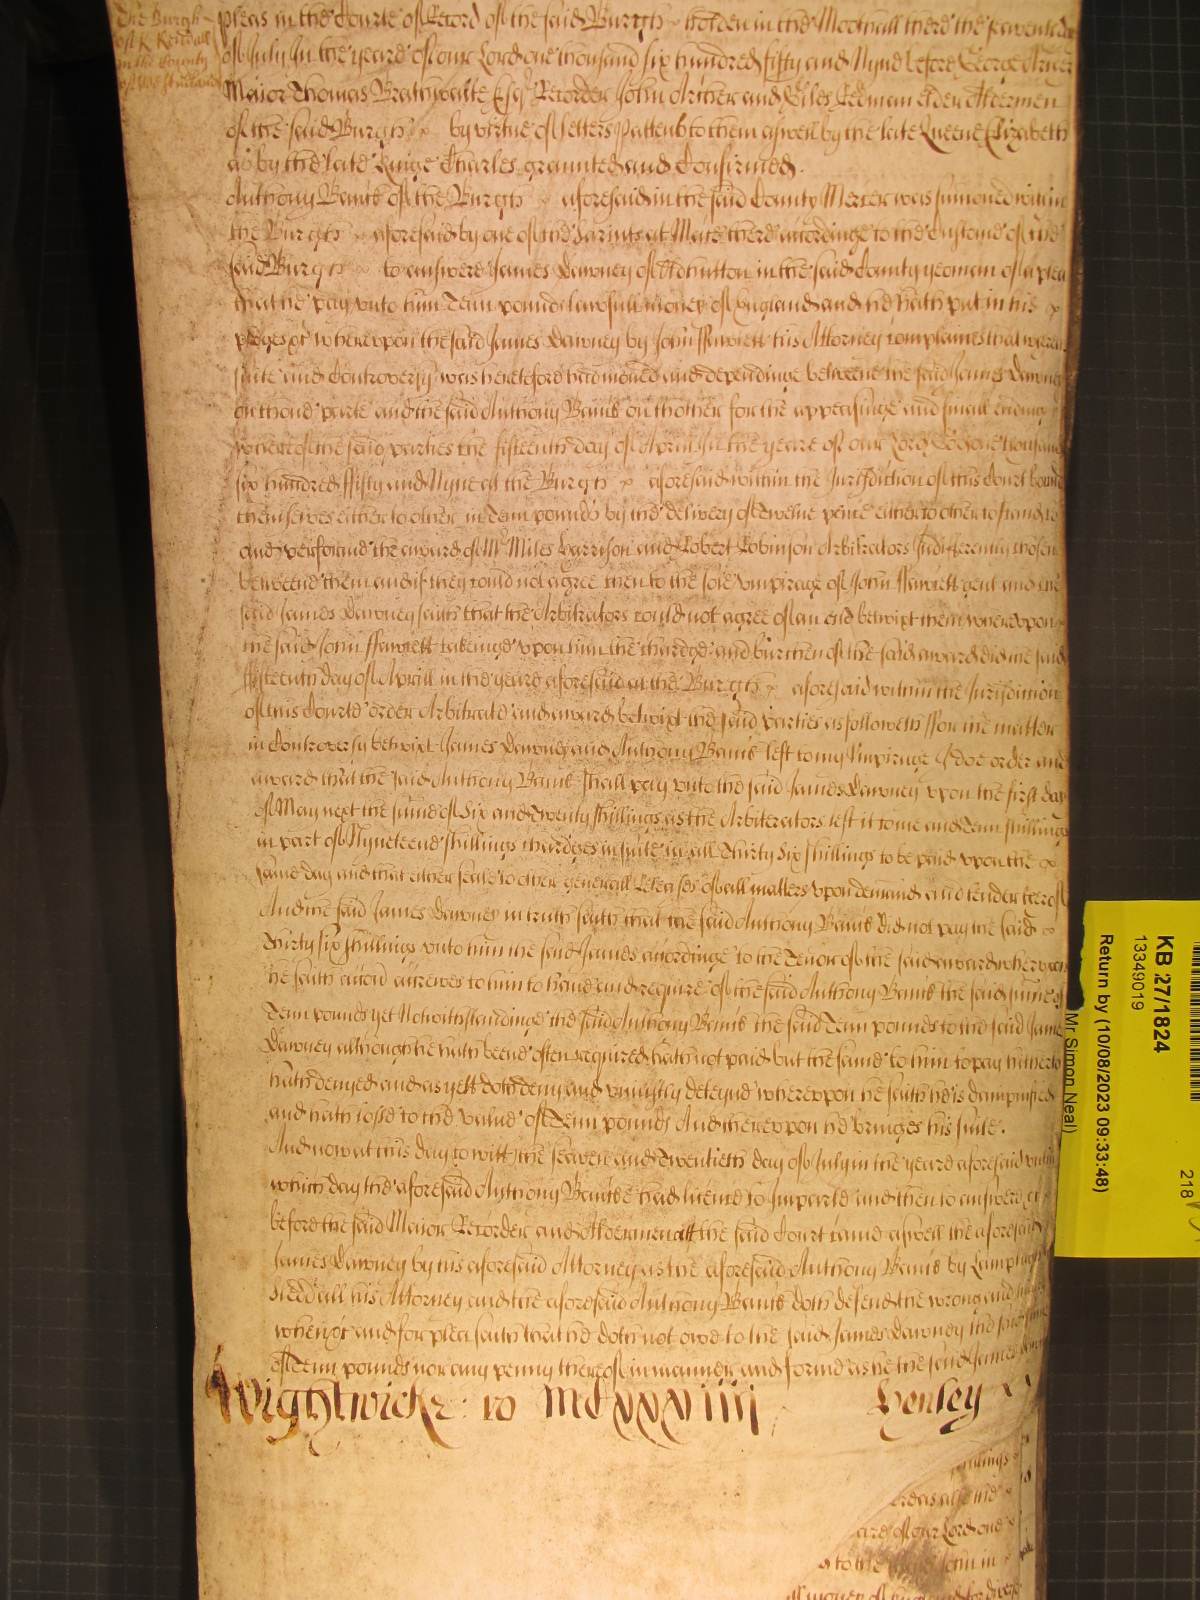 The Burgh
of K Kendall
in the County
of Westmerland
pleas in the Courte of Record of the said Burgh holden in the Mootehall there the seaventh day
of July In the yeare of our Lord one thousand six hundred fifty and Nyne before George Archer
Maior Thomas Brathwaite Esqr Recorder John Archer and Giles Redman Elder Aldermen
of the said Burgh by virtue of letters Pattents to them aswell by the late Queene Elizabeth
as by the late Kinge Charles graunted and Confirmed.
Anthony Banke of the Burgh aforesaid in the said County Mercer was sumoned within
the Burgh aforesaid by one of the Sariants at Mace there accordinge to the Custome of the
said Burgh to answere James Dawney of Hutton in the said County yeoman of a plea
that he pay unto him Tenn pounds lawfull money of England and he hath put in his
pledges &c whereupon the said James Dawney by John ffawcett his Attorney complaines that whereas
suite and Controversy was heretofore had moved and dependinge betweene the said James Dawney
on thone parte and the said Anthony Banke on thother for the appeasinge and finall endinge
whereof the said parties the fifteenth day of Aprill In the yeare of our Lord God one thousand
six hundred ffifty and Nyne at the Burgh aforesaid within the Jurisdiction of this Court bound
themselves either to other in Tenn pounds by the delivery of Twelve pence either to other to stand to
and performe the award of Mr Miles Harrison and Robert Robinson Arbitrators Indifferently chosen
betweene them and if they could not agree then to the sole Umpirage of John ffawcett gent and the
said James Dawney saith that the Arbitrators could not agree of an end betwixt them whereupon
the said John ffawcett takeinge upon him the chardge and burthen of the said award did the said
ffifteenth day of Aprill in the yeare aforesaid at the Burgh aforesaid within the Jurisdiction
of this Courte order Arbitrate and award betwixt the said parties as followeth ffor the matter
in Controversy betwixt James Dawney and Anthony Banke left to my Umpirage I doe order and
award that the said Anthony Banke shall pay unto the said James Dawney upon the first day
of May next the sume of Six and Twenty shillings as the Arbiterators left it to me and Tenn shillings
in part of Nyneteene shillings chardges in suite in all Thirty Six shillings to be paid upon the
same day and that either seale to other generall Releases of all matters upon demand and tender thereof
And the said James Dawney in truth saith that the said Anthony Banke did not pay the said
Thirty six shillings unto him the said James accordinge to the Tenor of the said award whereupon
he saith accon accrewes to him to have and require of the said Anthony Banke the said sume of
Tenn pounds yet Notwithstandinge the said Anthony Banke the said Tenn pounds to the said James
Dawney although he hath beene often required hath not paid but the same to him to pay hitherto
hath denyed and as yett doth deny and uniustly deteyne whereupon he saith he is dampnified
and hath losse to the value of Tenn pounds And thereupon he bringes his suite.
And now at this day to witt the seaven and Twentieth day of July in the yeare aforesaid untill
which day the aforesaid Anthony Banke had licence to Imparle and then to answere &c
before the said Maior Recorder and Aldermen att the said Court came aswell the aforesaid
James Dawney by his aforesaid Attorney as the aforesaid Anthony Banke by
his Attorney and the aforesaid Anthony Banke doth defend the wrong and
when &c and for plea saith that he doth not owe to the said James Dawney the said sume
of Tenn pounds nor any penny thereof in manner and forme as he the said James
Wightwicke: ro Mdxxxviiii Henley
shillings
whereas also the
yeare of our Lord one
to the said John in
of money of England for diverse
KB 27/1824
13349019
Return by (10/08/2023 09:33:48)
Mr Simon Neal)
218